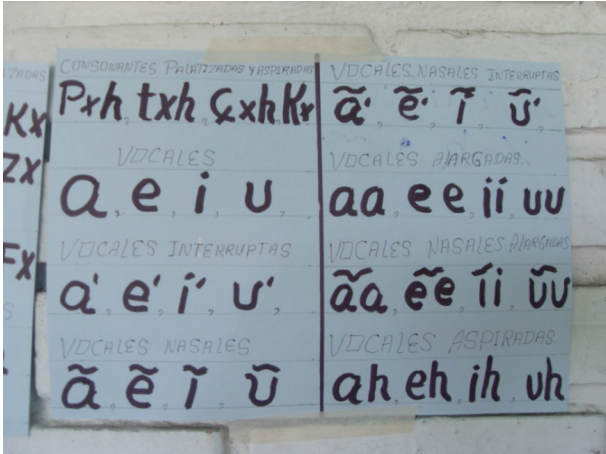 TZADAS
Kx
ZX
Fx
S
CONSONANTES PALATIZADAS Y ASPIRADAS
Pxh, txh, çxh, Kx
VOCALES
a, e, i, u,
VOCALES INTERRUPTAS
a' e' i' u'
VOCALES NASALES
ã, ẽ, ĩ, ũ
VOCALES, NASALES INTERRUPTAS
ã', ẽ', ĩ', ũ'
VOCALES ALARGADAS.
aa, ee, ii, uu
VOCALES NASALES ALARGADAS
ãa, ẽe, ĩi, ũu
VOCALES ASPIRADAS.
ah, eh, ih, uh